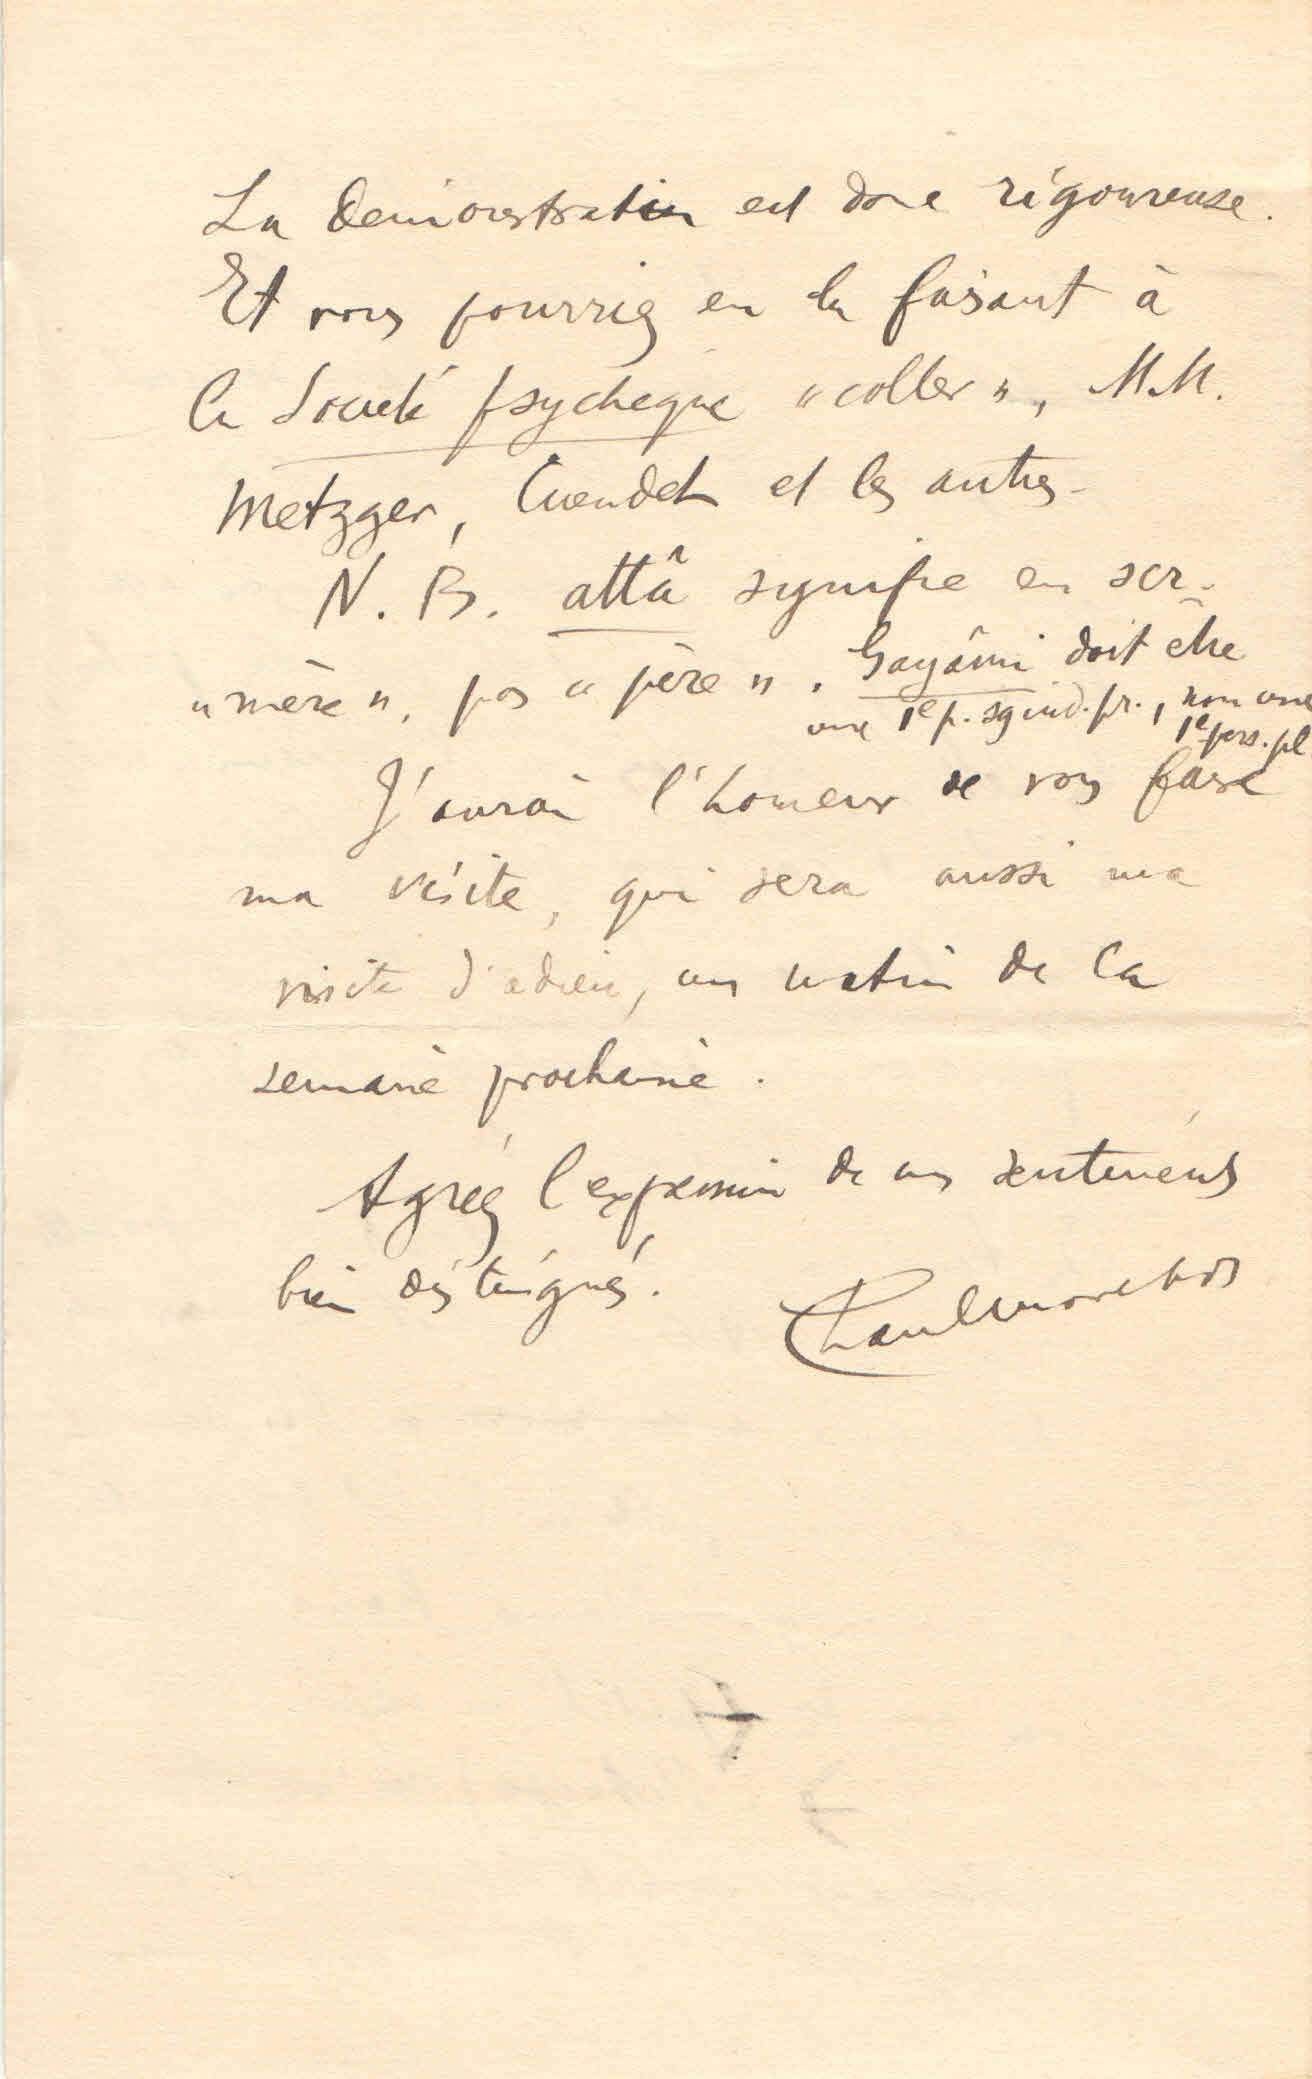 La démonstration est donc rigoureuse.
Et vous pourriez en la faisant à
la Société psychique « coller », M.M.
Metzger, Cuendet et les autres.
N. B. attâ signifie en scr.
« mère », pas « père ». Gayâmi doit être
une 1e p. sg ind. pr., non une
1e pers. pl
J'aurai l'honneur de vous faire
ma visite, qui sera aussi ma
visite d'adieu, un matin de la
semaine prochaine.
Agréez l'expression de mes sentiments
bien distingués.